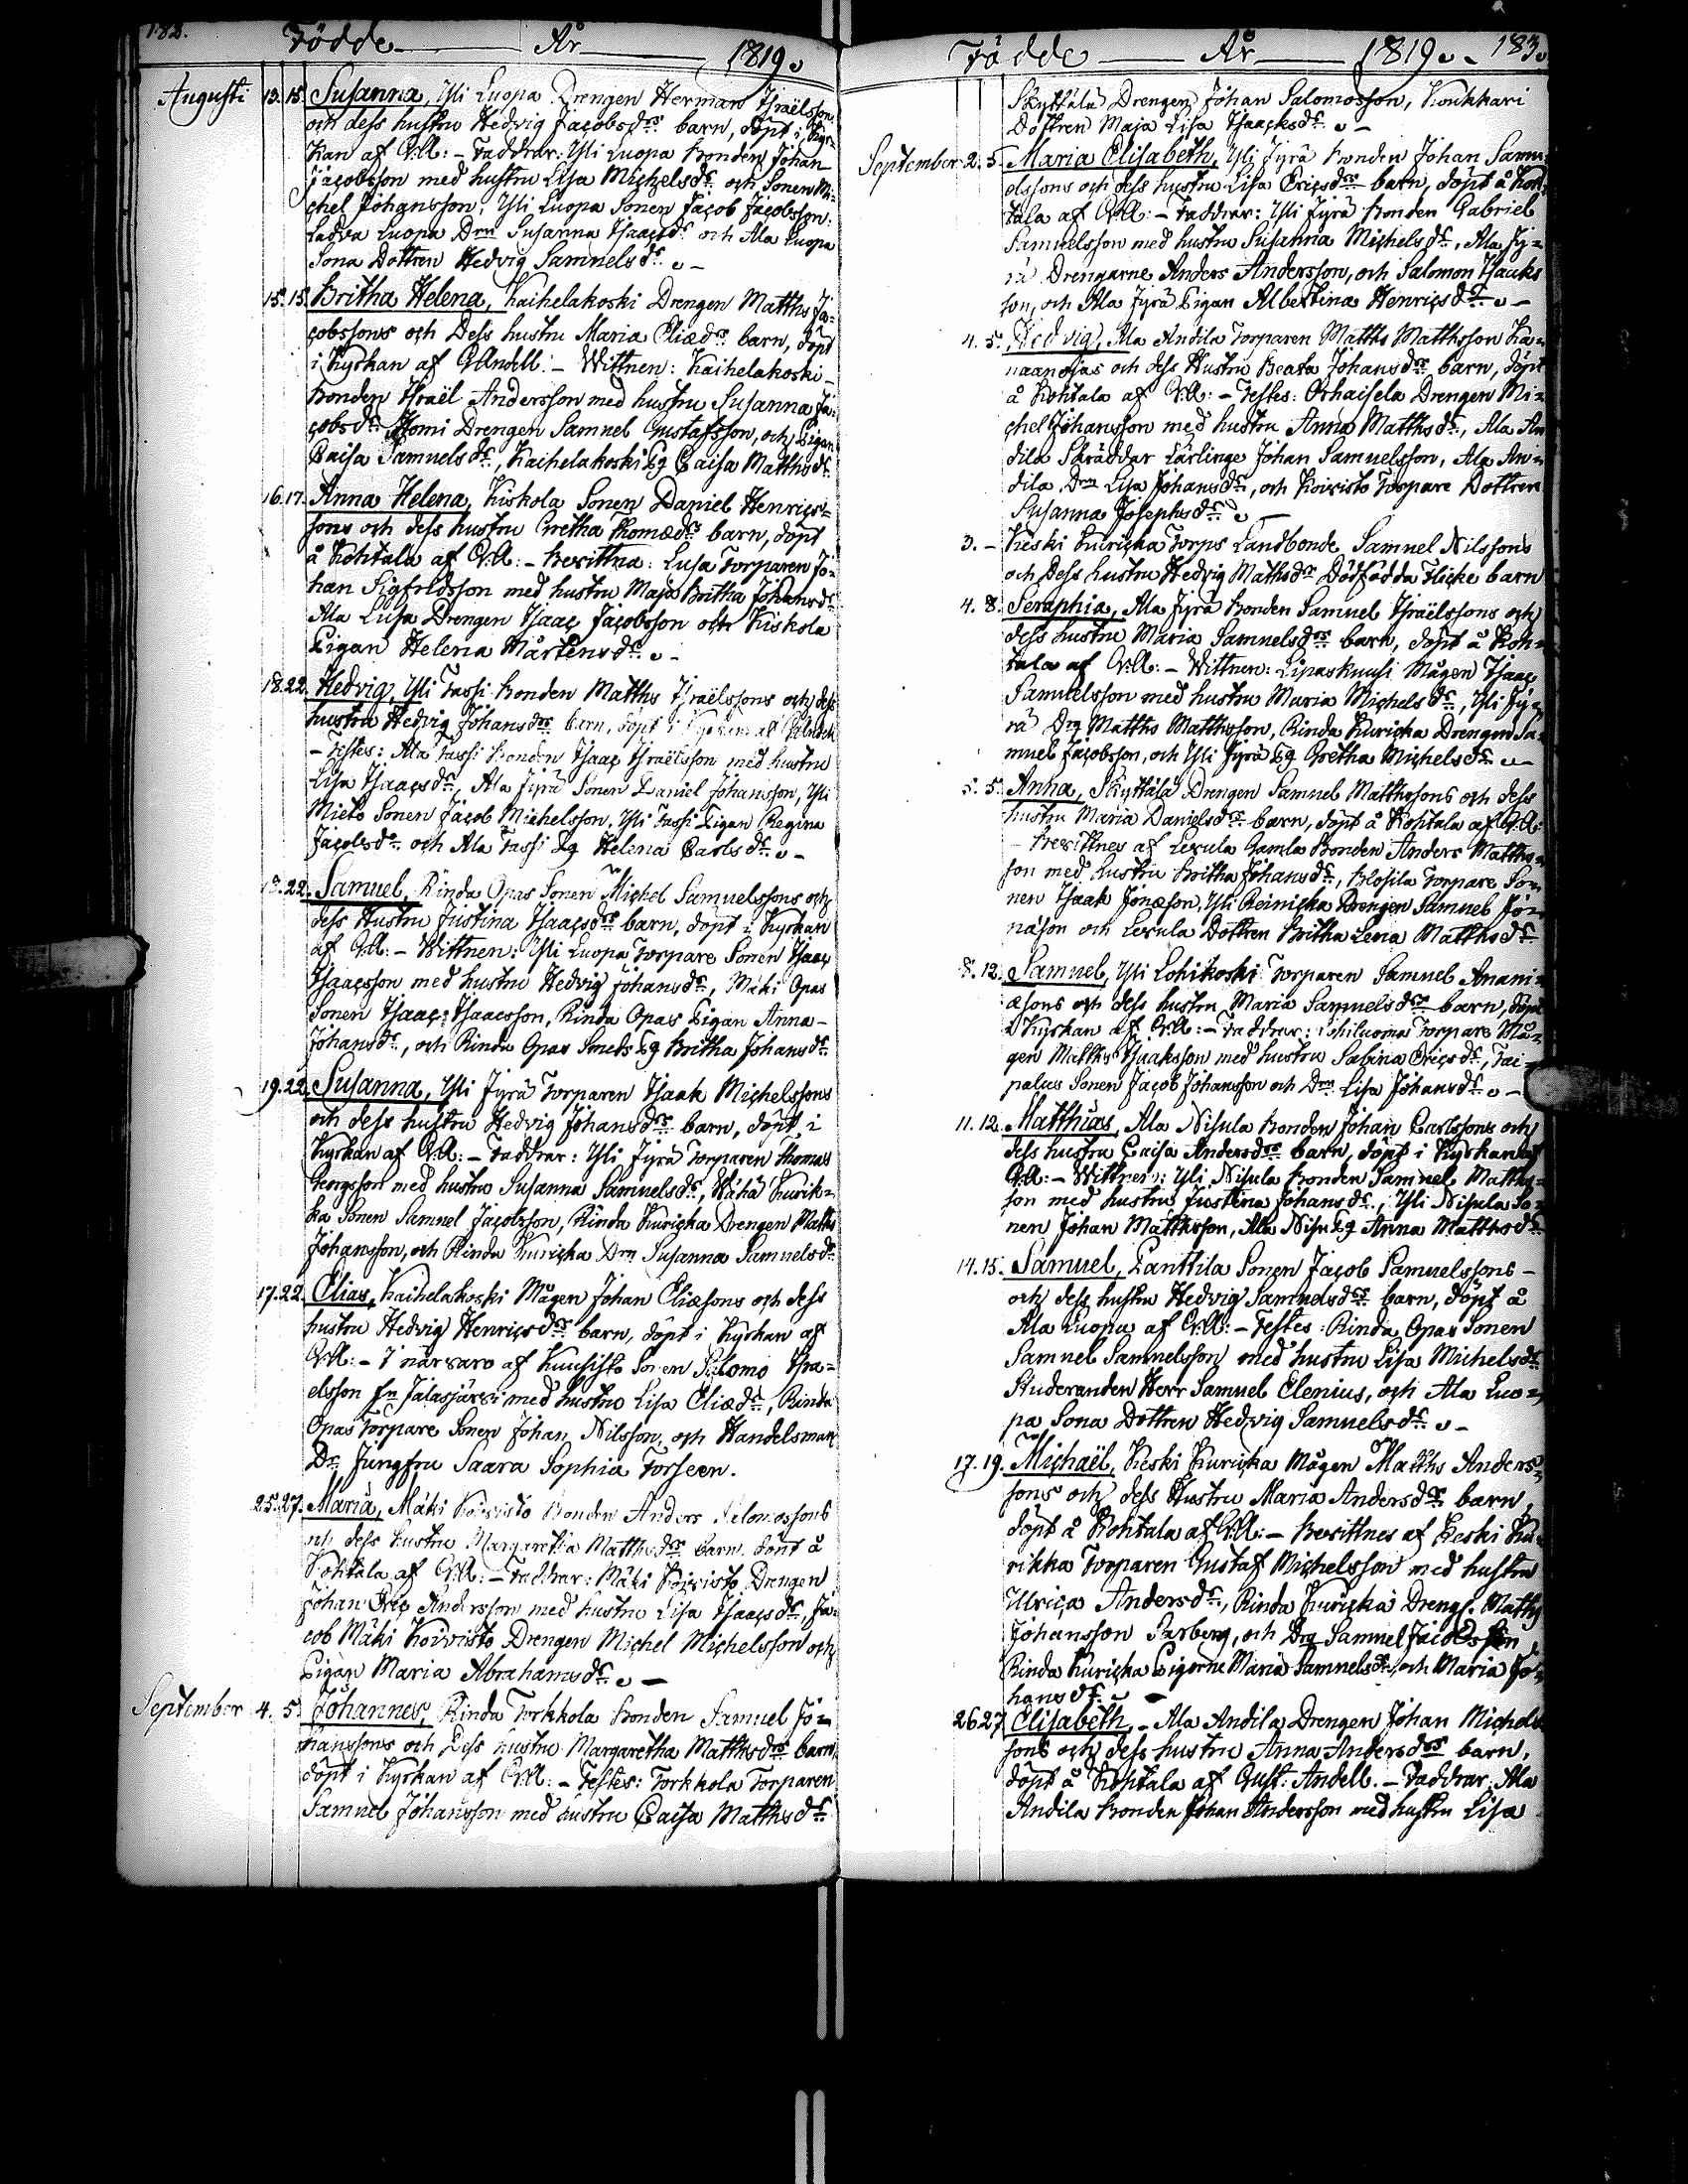 182.
Födde År 1819.
Augusti 13. 15. Susanna, Yli Luopa Drengen Herman Israëlsson
och dess hustru Hedvig Jacobsdrs barn, döpt i Kyr-
kan af C.ll: - Faddrar: Yli Luopa Bonden Johan
Jacobsson med hustru Lisa Michelsdr och Sonen Mi-
chel Johansson; Yli Luopa Sonen Jacob Jacobsson:
Ladva Luopa Drn Susanna Isaacsdr och Ala Luopa
Sona Dottren Hedvig Samuelsdr. -
15. 15. Britha Helena, Kaihelakoski Drengen Matths Ja-
cobssons och Dess hustru Maria Eliædrs barn, döpt
i Kyrkan af GAndell. - Wittnen: Kaihelakoski
Bonden Israël Andersson med hustru Susanna Ja-
cobsdr Drengen Samuel Gustafsson, och Pigan
Caisa Samuelsdr, Kaihelakoski Pg Caisa Matthsdr
16. 17. Anna Helena, Kiskola Sonen Daniel Henrics-
sons och dess hustru Gretha Thomædrs barn, döpt
å Kohtala af C.ll: - Bevittna: Lusa Torparen Jo-
han Sigfredsson med hustru Maja Britha Johansdr
Ala Lusa Drengen Isaac Jacobsson och Kiskola
Pigan Helena Mårtensdr. -
18. 22. Hedvig, Yli Jassi Bonden Matths Israëlssons och dess
hustru Hedvig Johansdrs barn, döpt i Kyrkan af
- Testes: Ala Jassi Bonden Isaac Israëlsson med hustru
Lisa Isaacsdr, Ala Jyrä Sonen Daniel Johansson, Yli
Mieto Sonen Jacob Michelsson. Yli Jassi Pigan Regina
Jacobsdr och Ala Jassi Pg Helena Carlsdr. -
18. 22. Samuel, Rinda Opas Sonen Michel Samuelssons och
dess Hustru Justina Isaacsdrs barn, döpt i Kyrkan
af C.ll: - Wittnen: Yli Luopa Torpare Sonen Isaac
Isaacsson med hustru Hedvig Johansdr, Mäki Opas
Sonen Isaac Isaacsson, Rinda Opas Pigan Anna
Johansdr, och Rinda Opas Pg Britha Johansdr
19. 22. Susanna, Yli Jyrä Torparen Isaak Michelssons
och dess hustru Hedvig Johansdrs barn, döpt i
Kyrkan af C.ll: - Faddrar: Yli Jyrä Torparen Thomas
Georgsson med hustru Susanna Samuelsdr, Wähä Kurik-
ka Sonen Samuel Jacobsson, Rinda Kuricka Drengen Matths
Johansson, och Rinda Kuricka Drn Susanna Samuelsdr
17. 22. Elias, Kaihelakoski Mågen Johan Eliæsons och dess
hustru Hedvig Henricsdrs barn, döpt i Kyrkan af
C.ll: - I närvaro af Kuusisto Sonen Salomo Isra-
elsson fn Jalasjärvi med hustru Lisa Eliædr, Rinda
Opas Torpare Sonen Johan Nilsson, och Handelsman
Dr Jungfru Saara Sophia Forseen.
25. 27. Maria, Mäki Koivisto Bonden Anders Salomossons
och dess hustru Margaretha Matthsdrs barn, döpt å
Kohtala af C.ll: - Faddrar: Mäki Koivisto Drengen
Johan Eric Andersson med hustru Lisa Isaacsdr, Ja-
cob Mäki Koivisto Drengen Michel Michelsson och
Pigan Maria Abrahamsdr. -
September 4. 5. Johannes, Rinda Torkkola Bonden Samuel Jo-
hanssons och Dess hustru Margaretha Matthsdrs barn
döpt i Kyrkan af C.ll: - Testes: Torkkola Torparen
Samuel Johansson med hustru Caisa Matthsdr
Födde År 1819. - 183.
Skyttälä Drengen Johan Salomosson, Koukkari
Dottren Maja Lisa Isaacksdr. -
September 2. 5. Maria Elisabeth, Yli Jyrä Bonden Johan Samu-
elssons och dess hustru Lisa Ericsdrs barn, döpt å Koh-
tala af C.ll: - Faddrar: Yli Jyrä Bonden Gabriel
Samuelsson med hustru Susanna Michelsdr, Ala Jy-
rä Drengarne Anders Andersson, och Salomon Isaaks
son, och Ala Jyrä Pigan Albertina Henricsdr. -
4. 5. Hedvig, Ala Andila Torparen Matths Matthsson Ka-
naanojas och dess Hustru Beata Johansdrs barn, döpt
å Kohtala af C.ll: - Testes: Orhaisela Drengen Mi-
chel Johansson med hustru Anna Matthsdr, Ala An
dila Skräddar Lärlinge Johan Samuelsson, Ala An-
dila Drn Lisa Johansdr, och Koivisto Torpare Dottren
Susanna Josephsdr. -
3. - Keski Kuricka Torps Landbonde Samuel Nilssons
och Dess hustru Hedvig Mathsdrs Dödfödda Flicke barn
4. 8. Seraphia, Ala Jyrä Bonden Samuel Israëlssons och
dess hustru Maria Samuelsdrs barn, döpt å Koh-
tala af C.ll: - Wittnen: Lipaskuusi Mågen Isaac
Samuelsson med hustru Maria Michelsdr, Yli Jy-
rä Drg Matths Matthsson, Rinda Kuricka Drengen Sa-
muel Jacobsson, och Yli Jyrä Pg Gretha Michelsdr. -
5. 5. Anna, Skyttälä Drengen Samuel Matthssons och dess
hustru Maria Danielsdrs barn, döpt å Kohtala af C.ll:
- Bevittnes af Lexula Gamla Bonden Anders Matths-
son med hustru Britha Johansdr, Torpare So-
nen Isaak Jonæson, Yli Reinicka Drengen Samuel Jo-
nason och Lexula Dottren Britha Lena Matthsdr
8. 12. Samuel, Yli Lohikoski Torparen Samuel Anani-
æsons och dess hustru Maria Samuelsdrs barn, döpt
i Kyrkan af C.ll: - Faddrar: Torpare Må-
gen Matths Isaaksson med hustru Sabina Ericsdr, Tai-
palus Sonen Jacob Johansson och Drn Lisa Johansdr. -
11. 12. Matthias, Ala Nisula Bonden Johan Carlssons och
dess hustru Caisa Andersdrs barn, döpt i Kyrkan af
C.ll: - Wittnen: Yli Nisula Bonden Samuel Matths-
son med hustru Justina Johansdr, Yli Nisula So-
nen Johan Matthsson, Ala Nisu Pg Anna Matthsdr
14. 15. Samuel, Panttila Sonen Jacob Samuelssons -
och dess hustru Hedvig Samuelsdrs barn, döpt å
Ala Luopa af C.ll: - Testes: Rinda Opas Sonen
Samuel Samuelsson med hustru Lisa Michelsdr
Studeranden Herr Samuel Elenius, och Ala Luo-
pa Sona Dottren Hedvig Samuelsdr. -
17. 19. Michaël, Keski Kuricka Mågen Matths Anders-
sons och dess Hustru Maria Andersdrs barn,
döpt å Kohtala af C.ll: - Bevittnes af Keski Ku-
rikka Torparen Gustaf Michelsson med hustru
Ulrica Andersdr, Rinda Kuricka Dreng. Matths
Johansson Sarberg, och Drg Samuel Jacobsson
Rinda Kuricka Pigorne Maria Samuelsdr, och Maria Jo-
hansdr. -
26. 27. Elisabeth, - Ala Andila Drengen Johan Michels
sons och dess hustru Anna Andersdrs barn,
döpt å Kohtala af Gust. Andell. - Faddrar: Ala
Andila Bonden Johan Andersson med hustru Lisa